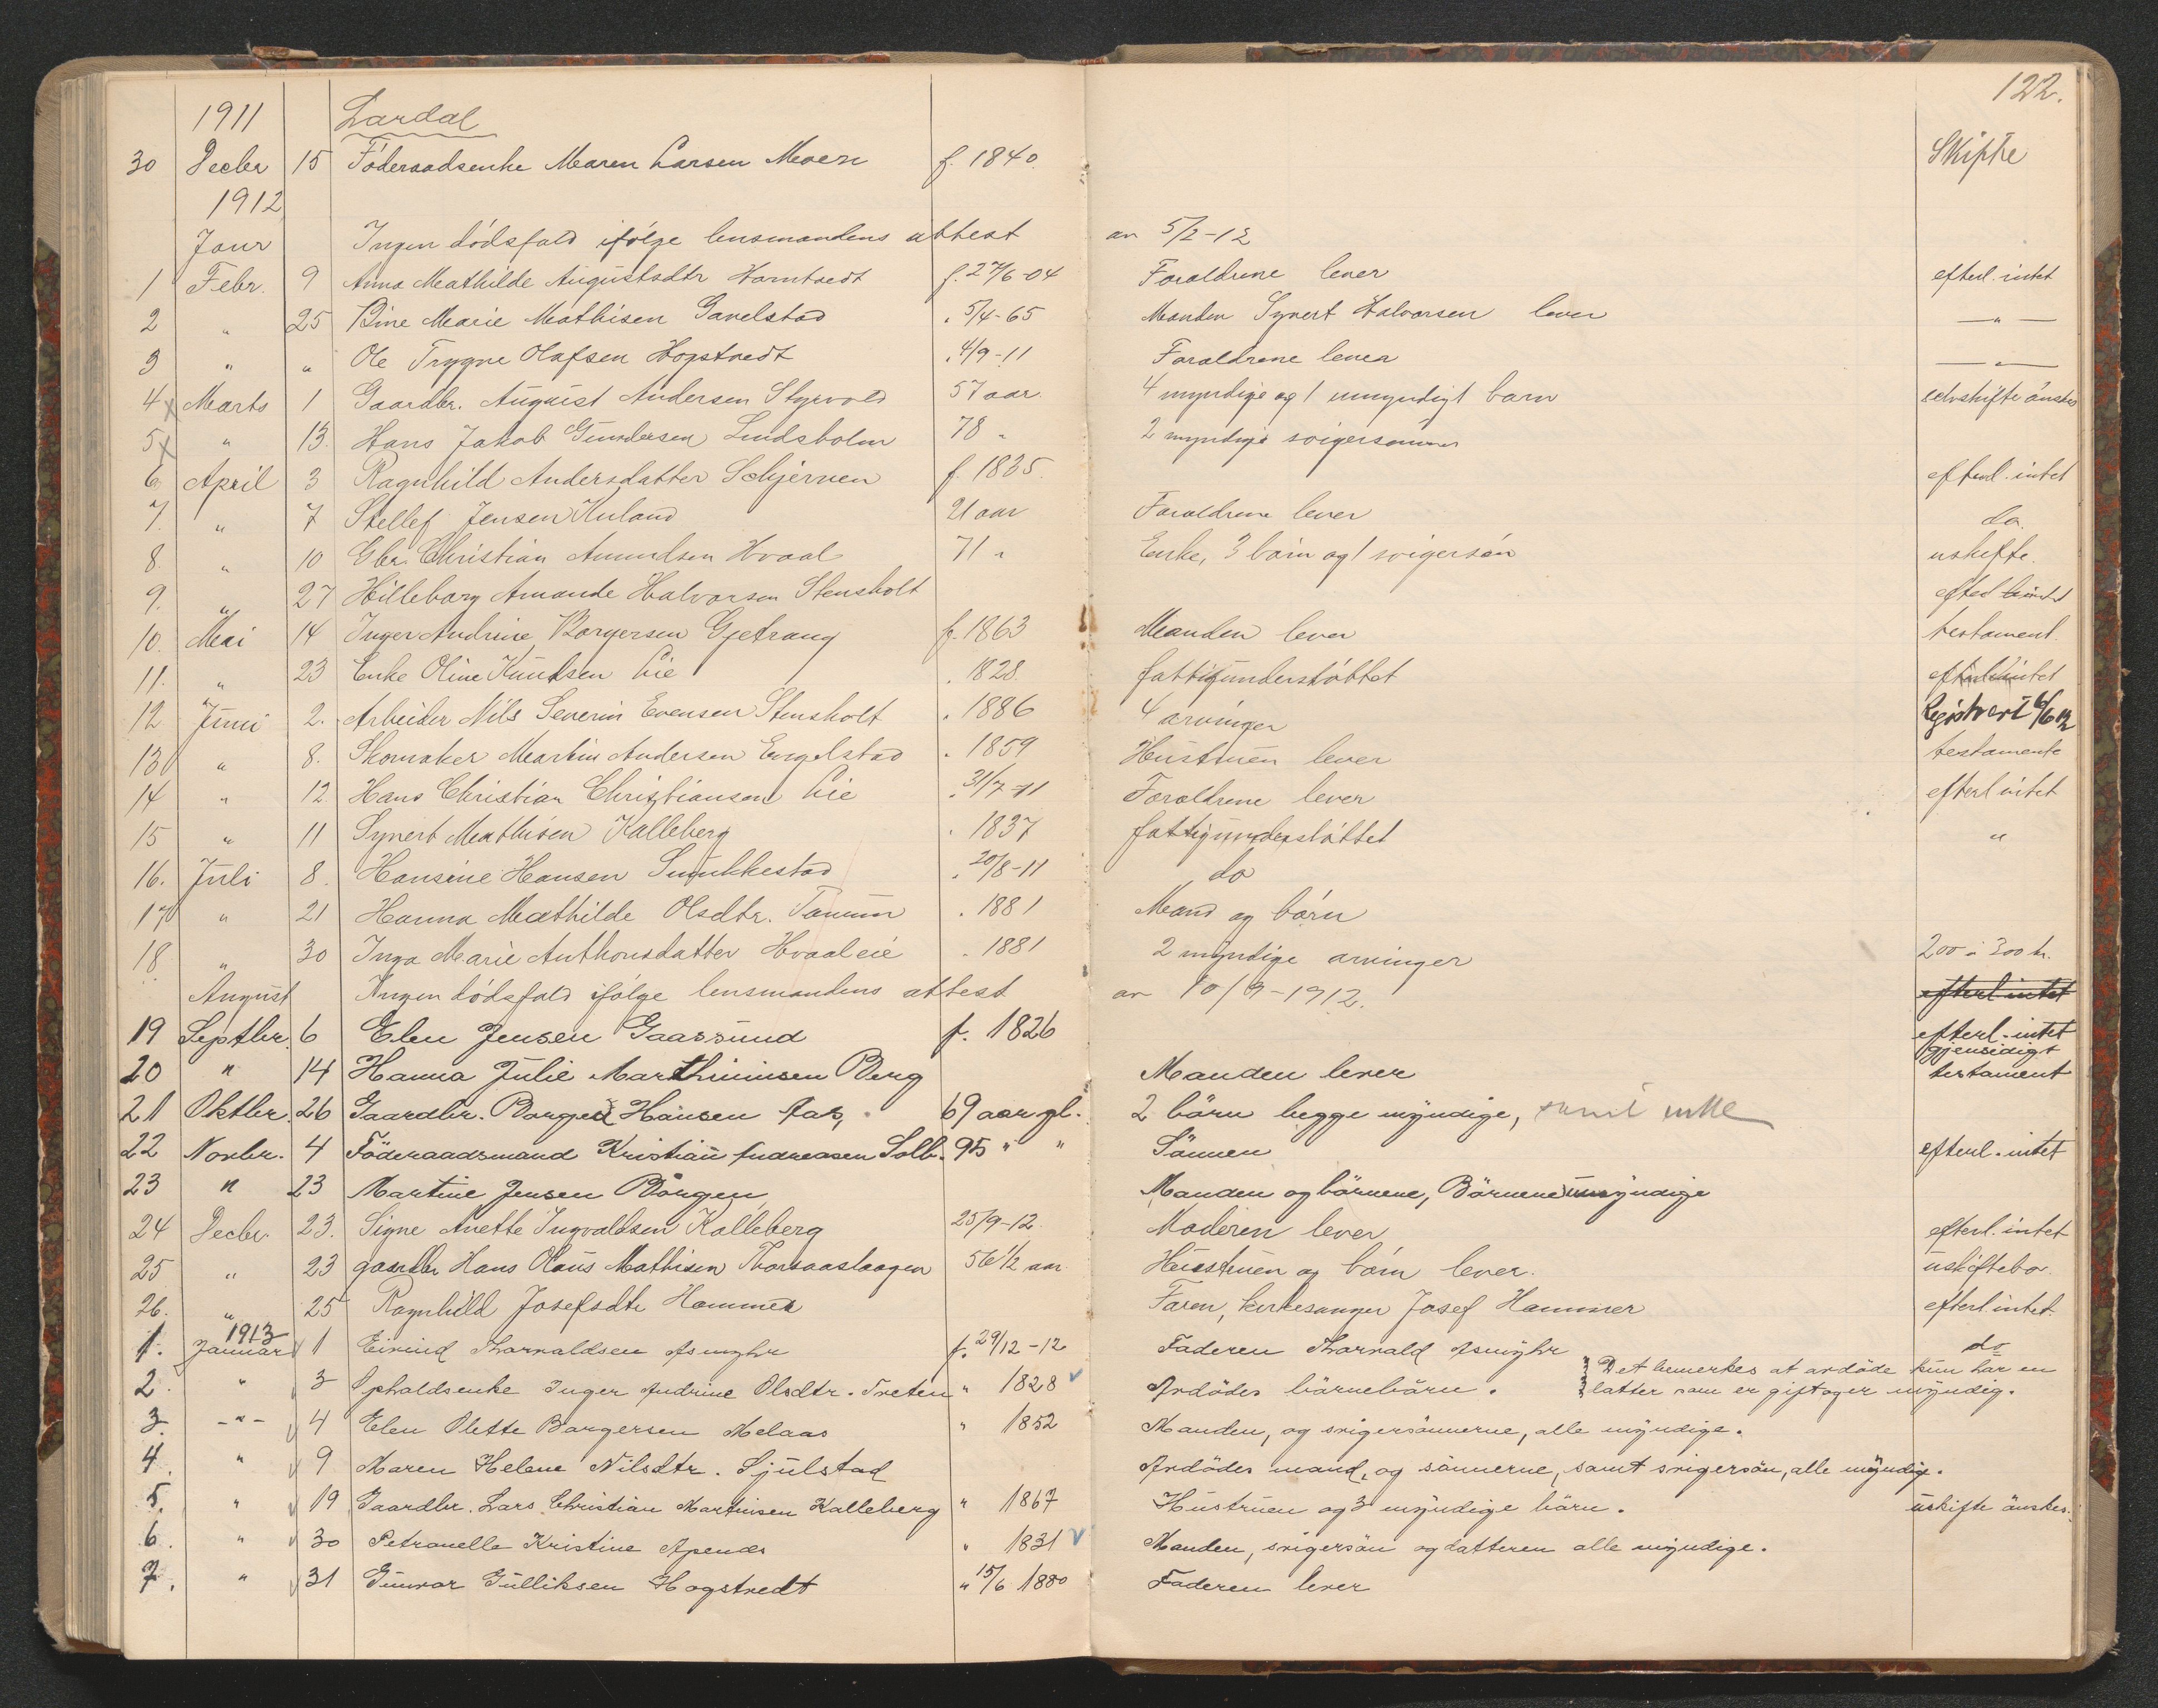 122.
1911 Lardal
30 Decbr 15 Föderaadsenke Maren Larsen Moen f. 1840. Skifte
1912
Janr Ingen dödsfald ifölge lensmandens attest av 5/2-12
1 Febr. 9 Anna Mathilde Augustsdtr f. 27/6-04 Foraldrene lever efterl. intet
2 " 25 Bine Marie Mathisen Gavelstad " 5/4-65 Manden Synert Halvorsen lever — " —
3 " " Ole Trygve Olafsen Hogstvedt " 4/9-11 Foraldrene lever — " —
4 x Marts 1 Gaardbr. August Andersen Styrvold 57 aar. 4 myndige og 1 umyndigt barn selvskifte önskes
5 x " 13. Hans Jakob Gundersen Lindsholm 78 " 2 myndige svigersönner
6 April 3 Ragnhild Andersdatter Schjerven f. 1835. efterl. intet
7. " 7 Stellef Jensen Kuland 21 aar Foraldrene lever do.
8. " 10 Gbr. Christian Amundsen Hvaal 71 " Enke, 3 börn og 1 svigersön uskifte.
9. " 27 Hilleborg Amande Halvorsen Stensholt efterl intet
10. Mai 14 Inger Andrine Borgersen Gjetrang f. 1863 Manden lever testament.
11. " 23 Enke Oline Knudsen Lie " 1828. fattigunderstöttet efterl. intet
12 Juni 2. Arbeider Nils Severin Evensen Stensholt " 1886 4 arvinger Registrert 6/6 12
13 " 8. Skomaker Martin Andersen Engelstad " 1859 Hustruen lever testamente
14 " 12 Hans Christian Christiansen Lie " 31/7-11 Foraldrene lever efterl intet
15 " 11 Synert Mathisen Kalleberg " 1837 fattigunderstöttet "
16. Juli 8. Hansine Hansen Smukkestad " 20/8-11 do
17 " 21 Hanna Mathilde Olsdtr. Tanum " 1881 Mand og börn
18 " 30 Inga Marie Anthonsdatter Hvaaleie " 1881 2 myndige arvinger 200 à 300 kr.
August Ingen dödsfald ifölge lensmandens attest av 10/9-1912. efterl intet
19 Septbr. 6 Elen Jensen Gaasrund f. 1826 efterl. intet
20 " 14 Hanna Julie Marthinisen Berg Manden lever gjensidigt testament
21 Oktbr. 26 Gaardbr. Borger Hansen 69 aar gl. 2 börn begge myndige,
22 Novbr. 4 Föderaadsmand Kristian Andreasen Solb. 95 " " Sönnen efterl. intet
23 " 23 Martine Jensen Börgen Manden og börnene, Börnene myndige
24 Decbr. 23. Signe Anette Ingvaldsen Kalleberg 25/9-12. Moderen lever efterl. intet
25 " 23 gaardbr Hans Olaus Mathisen Thorsaaslaagen 56 1/2 aar. Hustruen og börn lever. uskiftebo.
26. " 25 Ragnhild Josefsdtr Hammer Faren, kirkesanger Josef Hammer efterl intet.
1913
1. Januar 1 Eivind Thorvaldsen f. 29/12-12 Faderen Thorvald do
2. " 3 Opholdsenke Inger Andrine Olsdtr. Treten " 1828 Avdödes börnebörn. Det bemerkes at avdöde kun har en
datter som er gift og er myndig.
3. - " - 4 Elen Olette Borgersen Melaas " 1852 Manden, og svigersönnerne, alle myndige.
4. " 9 Maren Helene Nilsdtr. Sjulstad Avdödes mand, og sönnerne, samt svigersön, alle myndige.
5. " 19 Gaardbr. Lars Christian Martinsen Kalleberg " 1867 Hustruen og 3 myndige börn. uskifte önskes.
6. " 30 Petronelle Kristine Apenæs " 1831 Manden, svigersön og datteren alle myndige.
7. " 31 Gunvor Gulliksen Hogstvedt " 15/6 1880 Faderen lever